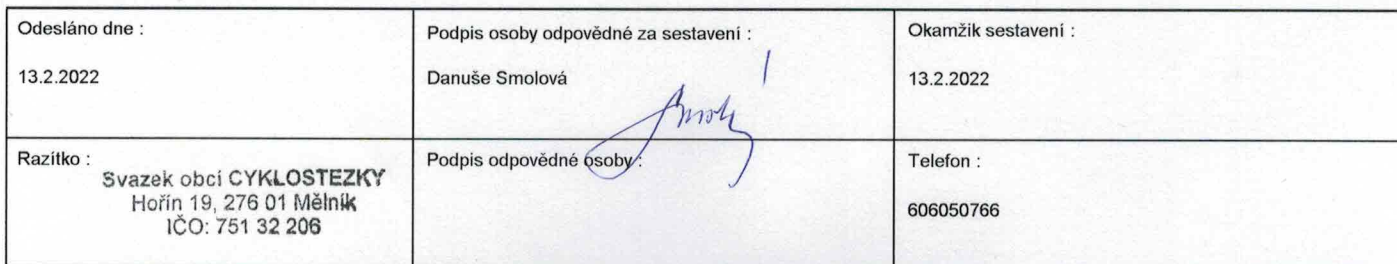 Odesláno dne :
13.2.2022
Podpis osoby odpovědné za sestavení :
Danuše Smolová
Okamžik sestavení :
13.2.2022
Razítko :
Svazek obcí CYKLOSTEZKY
Hořín 19, 276 01 Mělník
IČO: 751 32 206
Podpis odpovědné osoby :
Telefon :
606050766